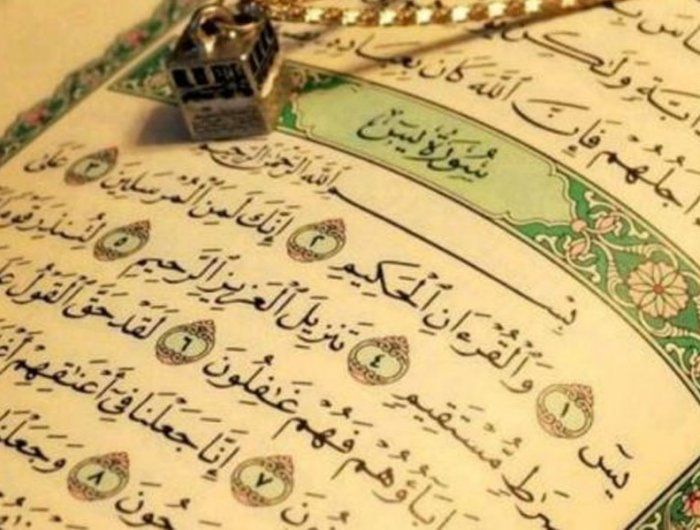 ابَّةٍ وَلَٰكِن
أَجَلُهُمْ فَإِنَّ ٱللَّهَ كَانَ بِعِبَادِ
سُورَةُ يسٓ
بِسْمِ ٱللَّهِ ٱلرَّحْمَٰنِ ٱلرَّحِيمِ
يسٓ ١ وَٱلْقُرْءَانِ ٱلْحَكِيمِ ٢ إِنَّكَ لَمِنَ ٱلْمُرْسَلِينَ ٣ عَلَىٰ
صِرَٰطٍ مُّسْتَقِيمٍ ٤ تَنزِيلَ ٱلْعَزِيزِ ٱلرَّحِيمِ ٥ لِتُنذِرَ قَوْمًا
ءَابَآؤُهُمْ فَهُمْ غَٰفِلُونَ ٦ لَقَدْ حَقَّ ٱلْقَوْلُ عَلَ
ونَ ٧ إِنَّا جَعَلْنَا فِىٓ أَعْنَٰقِهِمْ أَغْ
حُونَ ٨ وَجَعَلْنَا